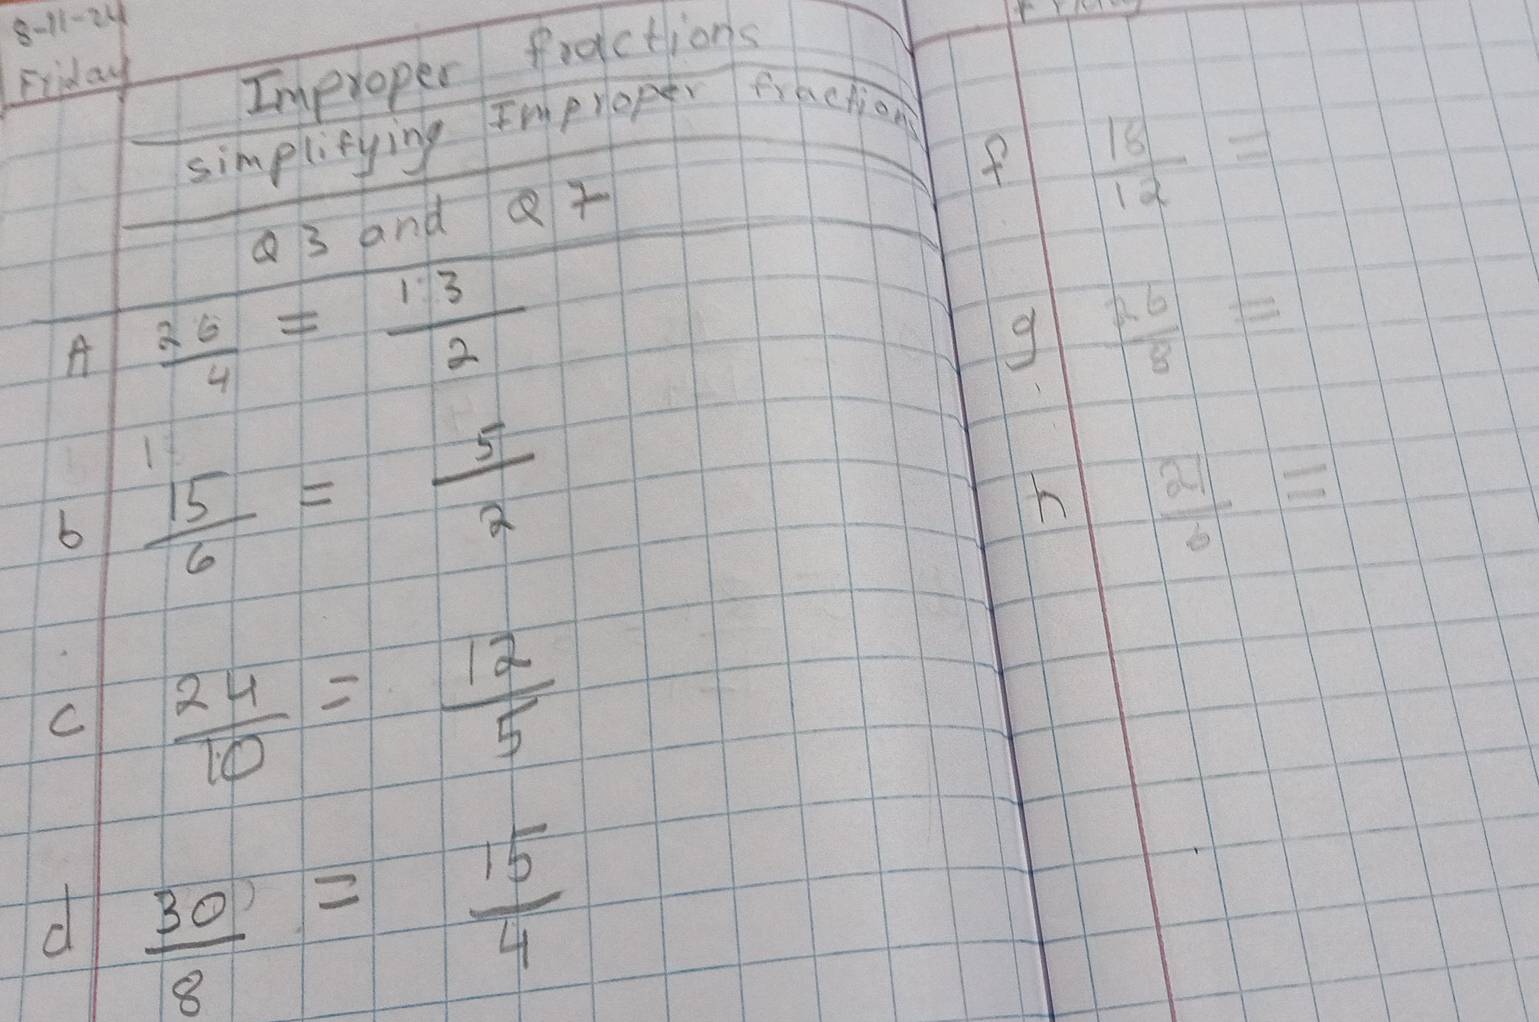 8-11-24
Friday
Improper fractions
simplifying Improper fractions
Q 3 and Q 7
A 26/4 = 13/2
b 15/6 = 5/2
c 24/10 = 12/5
d 30/8 = 15/4
f 18/12 =
g 26/8 =
h 21/6 =